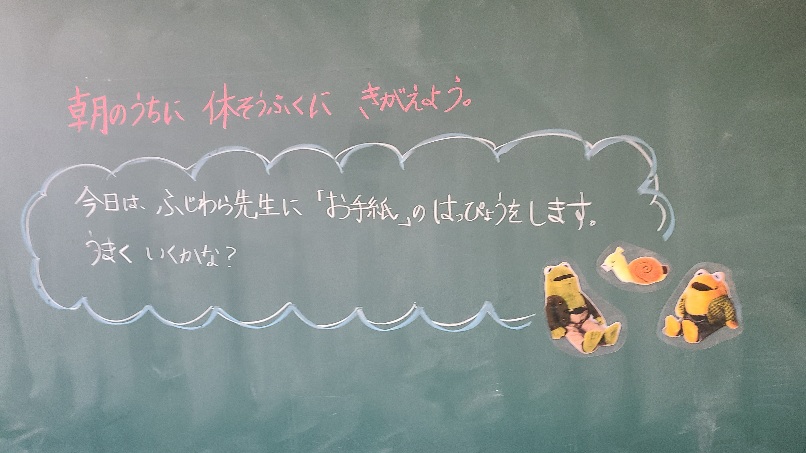 朝のうちに 休そうふくに きがえよう。
今日は、ふじわら先生に「お手紙」のはっぴょうをします。
うまく いくかな?